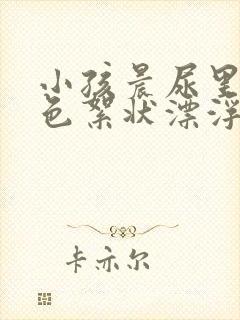 小孩晨尿里
色絮状漂浮
卡亦尔